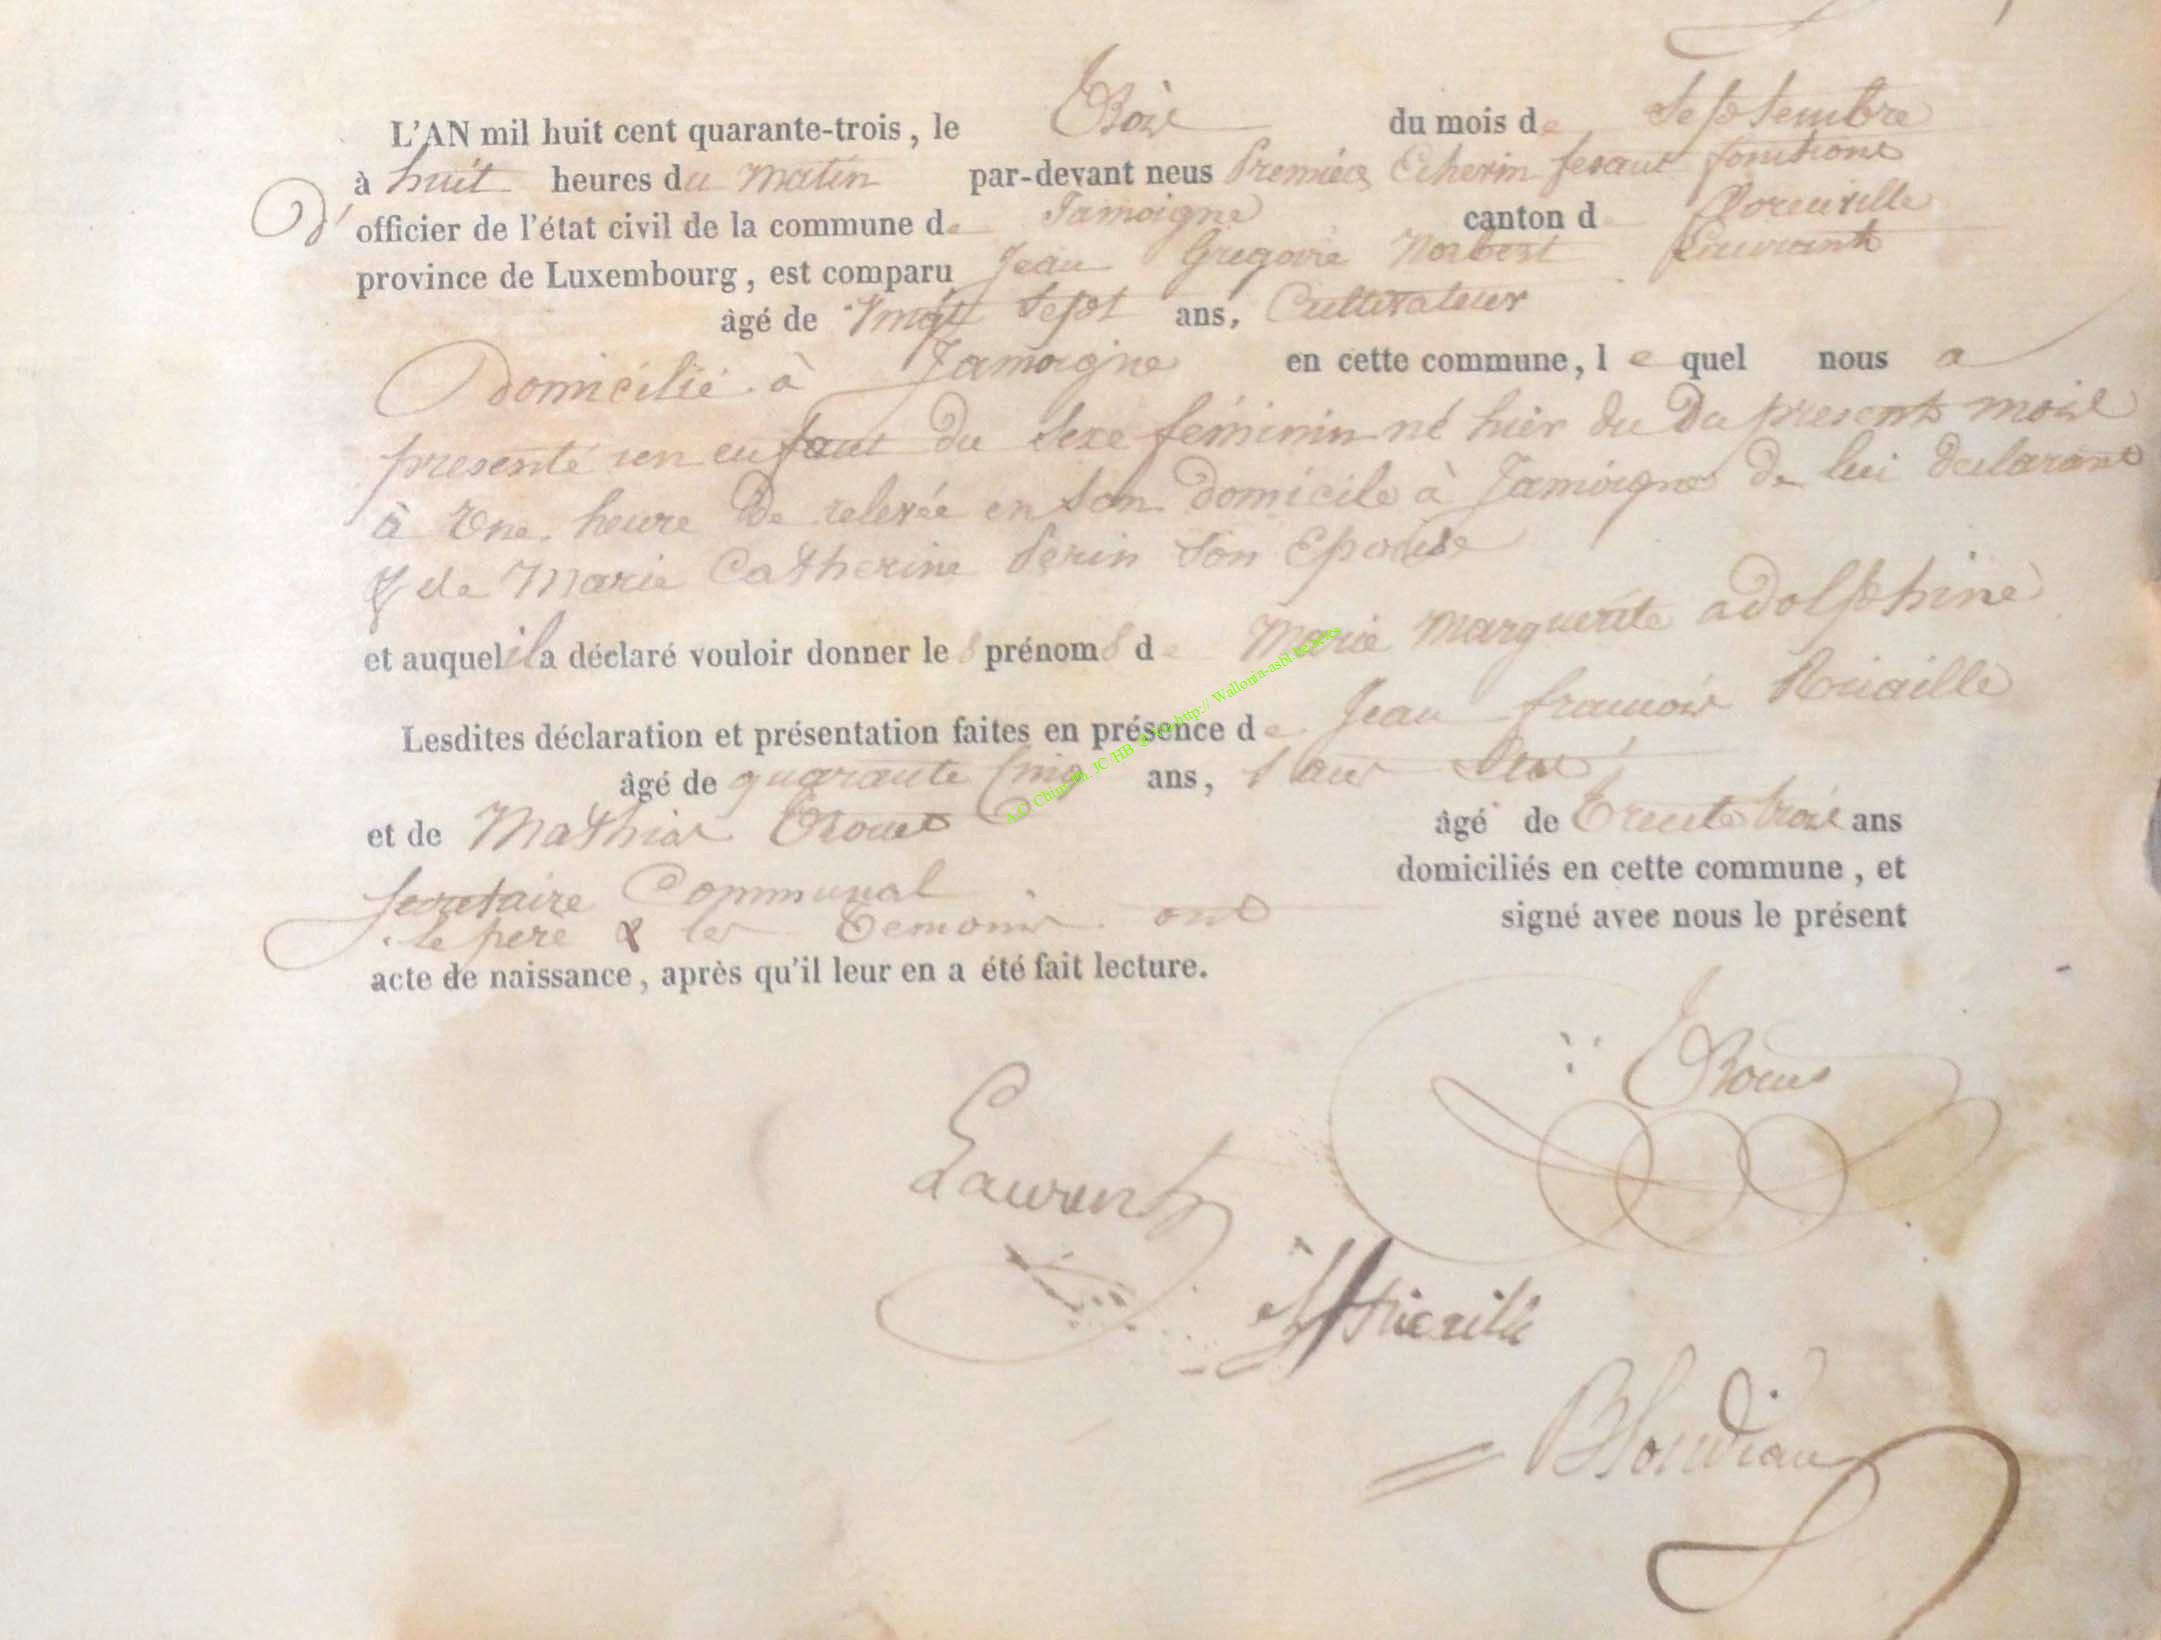 L'AN mil huit cent quarante-trois, le Trois du mois de Septembre
à huit heures du matin par-devant nous Premier Echevin fesant fonctions
d' officier de l'état civil de la commune de Jamoigne canton de florenville
province de Luxembourg, est comparu Jean Gregoire Norbert Laurent
âgé de Vingt Sept ans, Cultivateur
domicilié à Jamoigne en cette commune, le quel nous a
presenté un enfant du Sexe féminin né hier du du present mois
à Une heure de relevée en son domicile à Jamoigne de lui declarant
& de Marie Catherine Perin son Epouse
et auquel il a déclaré vouloir donner les prénoms de Marie Marguerite adolphine
Lesdites déclaration et présentation faites en présence de Jean francois
âgé de quarante Cinq ans,
et de Mathias âgé de Trente trois ans
Secretaire Communal domiciliés en cette commune, et
le pere & les Temoins ont signé avec nous le présent
acte de naissance, après qu'il leur en a été fait lecture.
Laurent
Blondiau